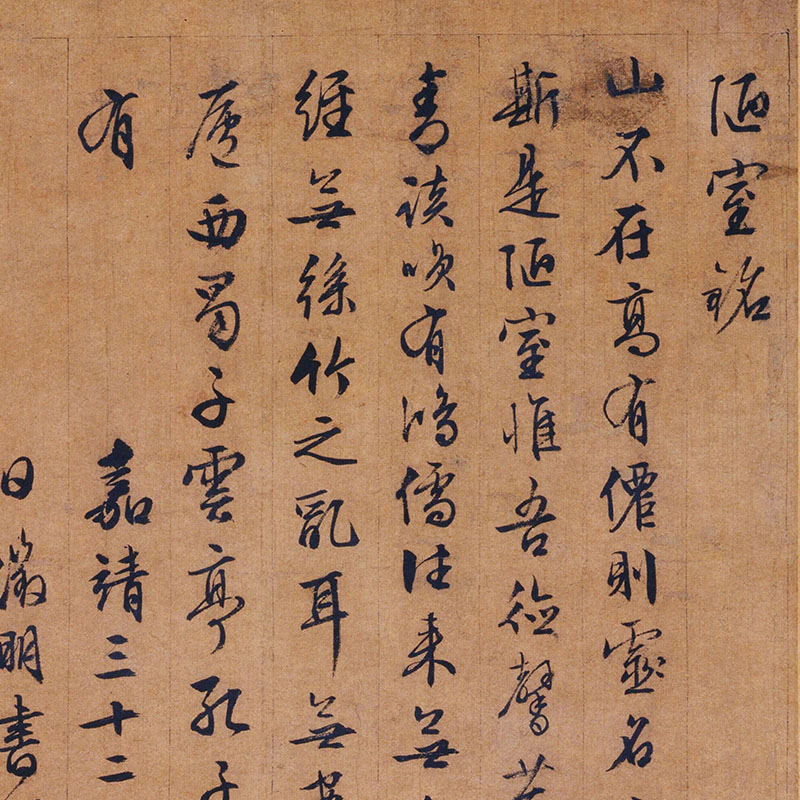 陋室銘
山不在高有僊則靈名
斯是陋室惟吾德馨苔
青談唉有鴻儒往来無
經無絲竹之亂耳無案
廬西蜀子雲亭孔子
有
嘉靖三十二
日徵明書